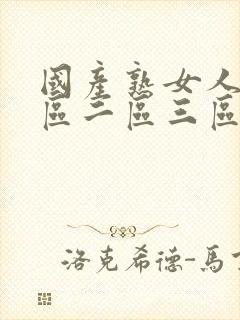 國產熟女人
區二區三區
洛克希德-馬